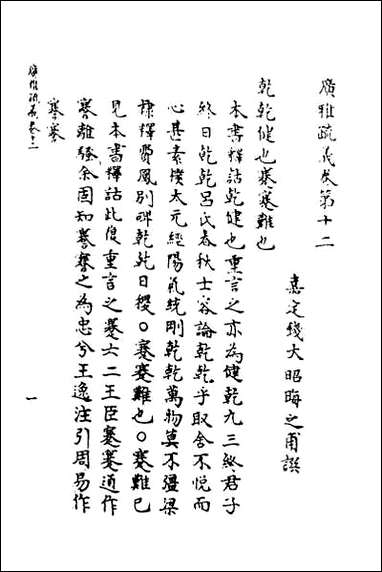 廣雅疏義卷第十二
嘉定錢大昭晦之甫譔
乾乾健也蹇蹇難也
本書釋詁乾健也重言之亦為健乾九三終君子
終日乾乾呂氏春秋士容論乾乾乎取舍不悅而
心甚素樸太元經陽氣統剛乾乾萬物莫不彊梁
隸釋費鳳別碑乾乾日稷〇蹇蹇難也〇蹇難已
見本書釋詁此復重言之蹇六二王臣蹇蹇道作
謇離騷余固知謇謇之為忠兮王逸注引周易作
謇謇
廣雅疏義卷十二
一